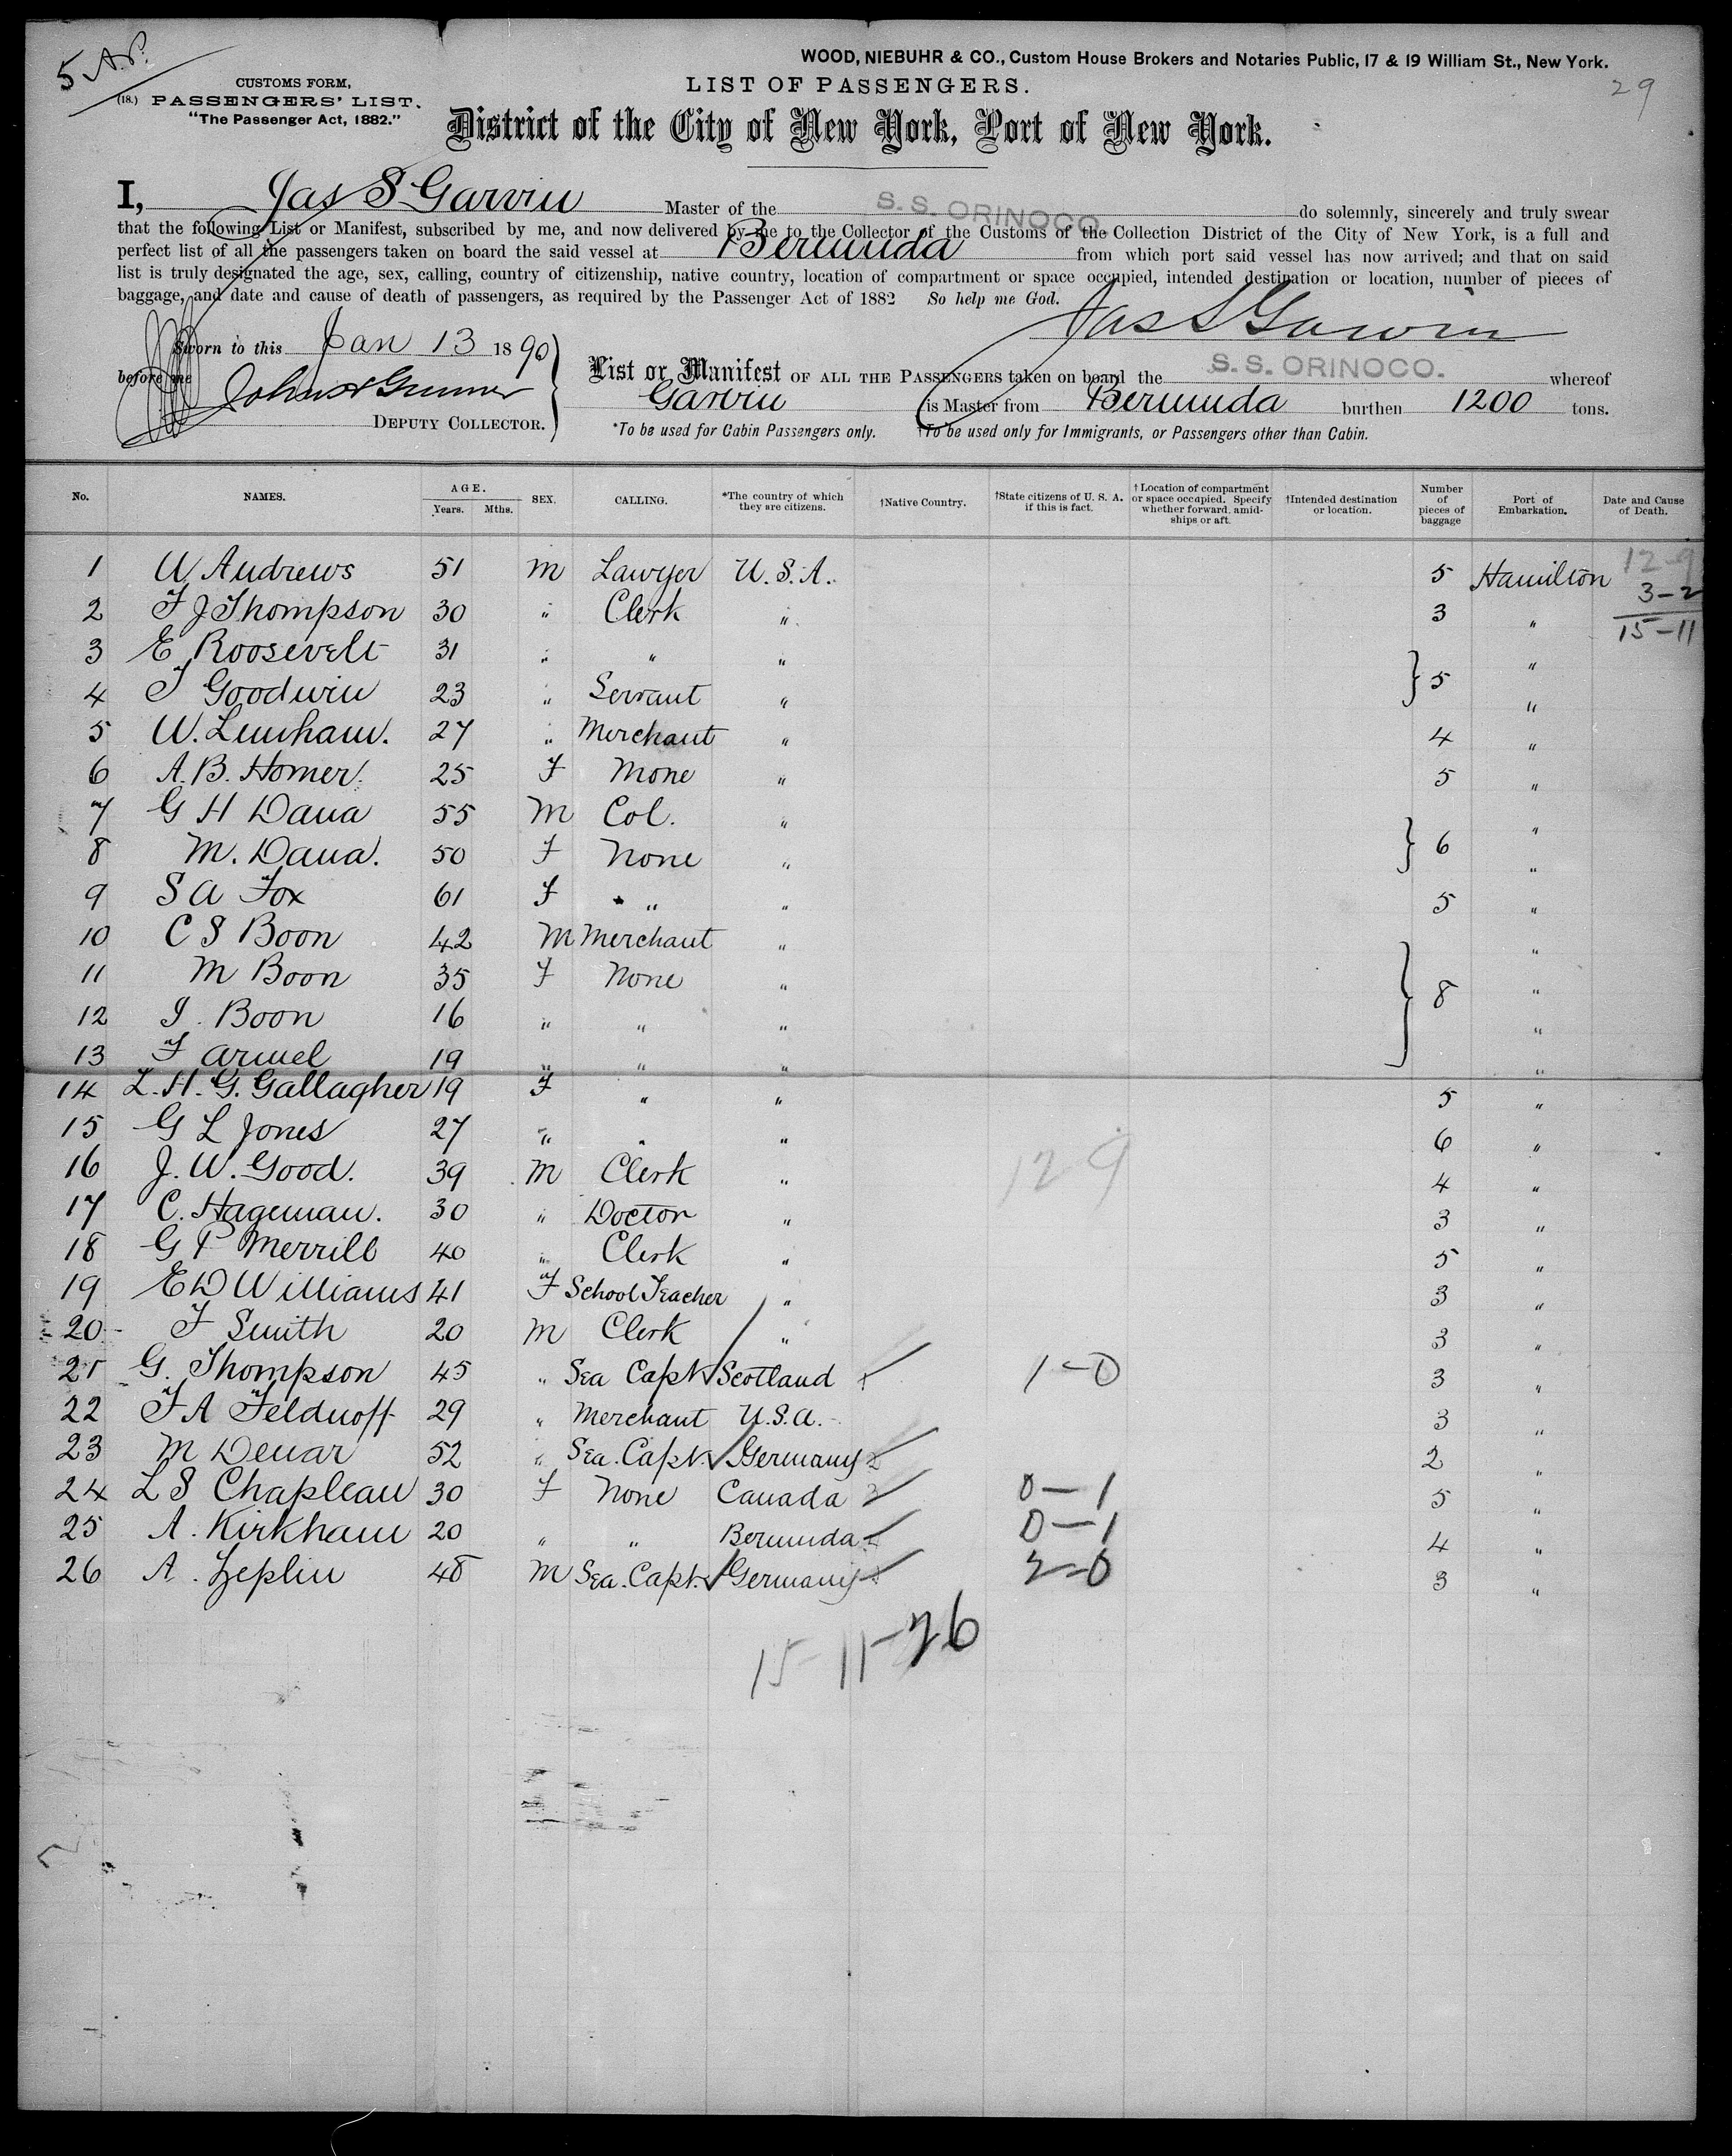 5 A.P.
WOOD, NIEBUHR & CO., Custom House Brokers and Notaries Public, 17 & 19 William St., New York.
29
CUSTOMS FORM,
(18.) PASSENGERS' LIST.
"The Passenger Act, 1882."
LIST OF PASSENGERS.
District of the City of New York, Port of New York.
I, Jas S Garvin Master of the S. S. ORINOCO. do solemnly, sincerely and truly swear
that the following List or Manifest, subscribed by me, and now delivered by me to the Collector of the Customs of the Collection District of the City of New York, is a full and
perfect list of all the passengers taken on board the said vessel at Bermuda from which port said vessel has now arrived; and that on said
list is truly designated the age, sex, calling, country of citizenship, native country, location of compartment or space occupied, intended destination or location, number of pieces of
baggage, and date and cause of death of passengers, as required by the Passenger Act of 1882 So help me God.
Jas S Garvin
Sworn to this Jan 13 1890
before me
DEPUTY COLLECTOR.
List or Manifest OF ALL THE PASSENGERS taken on board the S. S. ORINOCO. whereof
Garvin is Master from Bermuda burthen 1200 tons.
*To be used for Cabin Passengers only. †To be used only for Immigrants, or Passengers other than Cabin.
No. NAMES. AGE. Years. Mths. SEX. CALLING. *The country of which they are citizens. †Native Country. †State citizens of U. S. A. if this is fact. †Location of compartment or space occupied. Specify whether forward, amidships or aft. †Intended destination or location. Number of pieces of baggage Port of Embarkation. Date and Cause of Death.
1 W Andrews 51 M Lawyer U.S.A. 5 Hamilton 12-9
2 F J Thompson 30 " Clerk " 3 " 3-2
15-11
3 E Roosevelt 31 " " " "
4 T Goodwin 23 " Servant " } 5 "
5 W. Lumham. 27 " Merchant " 4 "
6 A. B. Homer. 25 F None " 5 "
7 G H Dana 55 M Col. " "
8 M. Dana. 50 F None " } 6 "
9 S A Fox 61 F " " 5 "
10 C S Boon 42 M Merchant " "
11 M Boon 35 F None " } 8 "
12 I. Boon 16 " " " "
13 F Armel 19 " " " "
14 L. H. G. Gallagher 19 F " " 5 "
15 G L Jones 27 " " " 6 "
16 J. W. Good. 39 M Clerk " 12 9 4 "
17 C. Hageman. 30 " Doctor " 3 "
18 G P Merrill 40 " Clerk " 5 "
19 E D Williams 41 F School Teacher " 3 "
20 F Smith 20 M Clerk " 3 "
21 G. Thompson 45 " Sea Capt Scotland 1 1-0 3 "
22 F A Feldnoff 29 " Merchant U.S.A. 3 "
23 M Denar 52 " Sea. Capt. Germany 2 2 "
24 L S Chapleau 30 F None Canada 3 0-1 5 "
25 A. Kirkham 20 " " Bermuda 0-1 4 "
26 A. Zeplin 48 M Sea. Capt. Germany 2-0 3 "
15-11-26